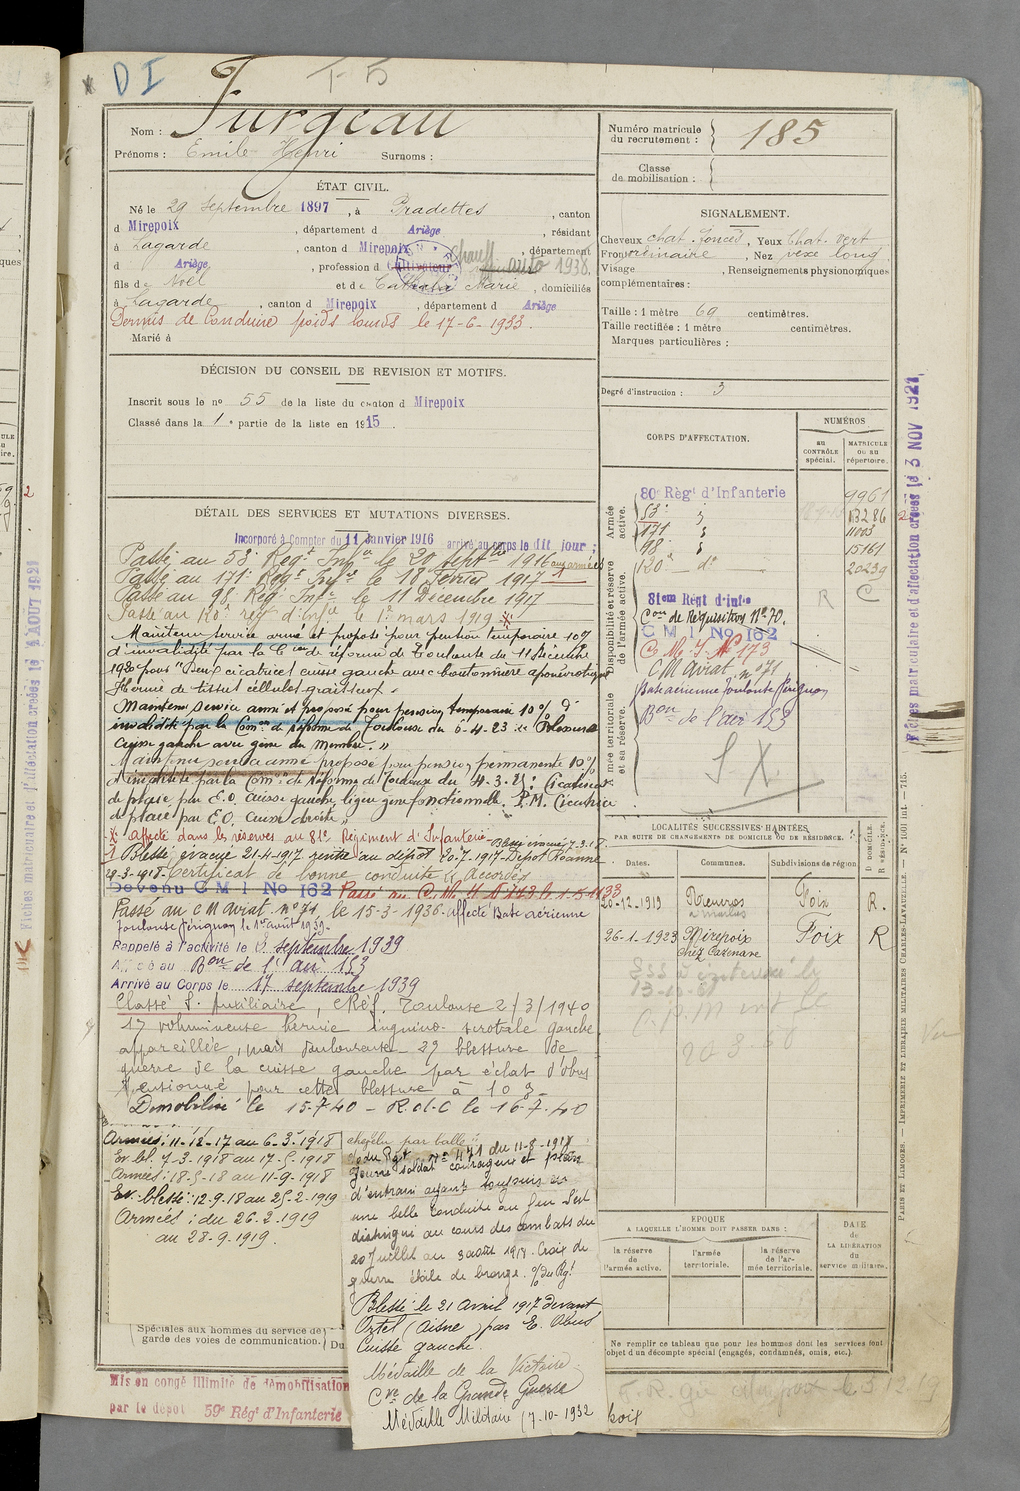 D I
T 5
Nom : Furgeau
Prénoms : Emile Henri Surnoms :
Numéro matricule du recrutement : 185
Classe de mobilisation :
ÉTAT CIVIL.
Né le 29 Septembre 1897, à Pradettes, canton
d Mirepoix, département d Ariège, résidant
à Lagarde, canton d Mirepoix, département
d Ariège, profession d Cultivateur Chauff auto 1938
fils de Noël et de Marie, domiciliés
à Lagarde, canton d Mirepoix, département d Ariège
Permis de Conduire poids lourds le 17-6-1933.
Marié à
SIGNALEMENT.
Cheveux chat. foncés, Yeux Chat. vert
Front ordinaire, Nez vexe long
Visage , Renseignements physionomiques
complémentaires :
Taille : 1 mètre 69 centimètres.
Taille rectifiée : 1 mètre centimètres.
Marques particulières :
Degré d'instruction : 3
DÉCISION DU CONSEIL DE REVISION ET MOTIFS.
Inscrit sous le nº 55 de la liste du canton d Mirepoix
Classé dans la 1e partie de la liste en 1915.
CORPS D'AFFECTATION.
NUMÉROS
au CONTRÔLE spécial.
MATRICULE OU AU répertoire.
Armée active.
80e Régt d'Infanterie 9961
53e 13286
171e 11003
98e 15161
120e do 20239
Disponibilité et réserve de l'armée active.
81em Régt d'infie R C
Con de Réquisition No 70.
C M I No 162
C. M. I. No 173
C M Aviat nº 71
Base aérienne Toulouse Pérignon
Bon de l'air 153
S X
DÉTAIL DES SERVICES ET MUTATIONS DIVERSES.
Incorporé à Compter du 11 Janvier 1916 arrivé au corps le dit jour ;
Passé au 53e Regt Infie le 20 Septbre 1916 aux armées
Passé au 171e Regt Infie le 18 Février 1917 1
Passé au 98e Reg Infie le 11 Décembre 1917
Passé au 120e reg d'Infie le 1er mars 1919
Maintenu service armé et proposé pour pension temporaire 10%
d'invalidité par la Con de réforme de Toulouse du 11 Décembre
1920 pour "Deux cicatrices cuisse gauche avec boutonnière aponévrotique
Hernie de tissut cellulo graisseux"
Maintenu service armé et proposé pour pension temporaire 10% d'
invalidité par la Comon de Réforme de Toulouse du 6-4-23 "Blessure
cuisse gauche avec gêne du membre."
Maintenu service armé proposé pour pension permanente 10%
d'invalidité par la Comon de Réforme de Toulouse du 4-3-25 : Cicatrices
de plaie par E.O. cuisse gauche, légère gêne fonctionnelle. P.M. Cicatrice
de plaie par E.O. cuisse droite"
Affecté dans les réserves au 81e Régiment d'Infanterie
1 Blessé évacué 21-4-1917 rentré au dépôt 20-7-1917 Dépôt Roanne
Certificat de bonne conduite "Accordé"
Devenu C M I No 162 Passé au C. M. I No 173
Passé au C M Aviat nº 71 le 15-3-1936. Affecté Base aérienne
Toulouse Pérignon le 1er août 1939.
Rappelé à l'activité le 8 septembre 1939
Affecté au Bon de l'air 153
Arrivé au Corps le 17 septembre 1939
Classé S. Auxiliaire, C Réf. Toulouse 2/3/1940
1º volumineuse hernie inguino-scrotale gauche
appareillée, mais douloureuse – 2º blessure de
guerre de la cuisse gauche par éclat d'obus
Pensionné pour cette blessure à 10%
Démobilisé le 15-7-40 – R.d.C le 16-7-40
Armées : 11-12-17 au 6-3-1918
Ev. bl. 7-3-1918 au 17-5-1918
Armées : 18-5-18 au 11-9-1918
Ev. blessé : 12-9-18 au 25-2-1919
Armées : du 26-2-1919
au 28-9-1919.
par balle
du Rgt nº 471 du 11-8-1918
Jeune soldat courageux et plein
d'entrain ayant toujours eu
une belle conduite au feu S'est
distingué au cours des combats du
20 Juillet au 3 août 1918. Croix de
guerre étoile de bronze.
Blessé le 21 avril 1917 devant
Ostel (Aisne) par E. Obus
Cuisse gauche.
Médaille de la Victoire
Cve de la Grande Guerre
Médaille Militaire 17-10-1932
Spéciales aux hommes du service de garde des voies de communication. Du
Mis en congé illimité de démobilisation
par le dépôt 59e Régt d'Infanterie
LOCALITÉS SUCCESSIVES HABITÉES
PAR SUITE DE CHANGEMENTS DE DOMICILE OU DE RÉSIDENCE.
Dates. Communes. Subdivisions de région D. DOMICILE. R. RÉSIDENCE.
20-12-1919 Foix R.
26-1-1923 Mirepoix Foix R
chez Cazenave
ÉPOQUE
A LAQUELLE L'HOMME DOIT PASSER DANS :
la réserve de l'armée active.
l'armée territoriale.
la réserve de l'armée territoriale.
DATE DE LA LIBÉRATION du service militaire.
Ne remplir ce tableau que pour les hommes dont les services font
objet d'un décompte spécial (engagés, condamnés, omis, etc.).
Foix
Fiches matriculaire et d'affectation créées le 3 NOV 1921
PARIS ET LIMOGES. — IMPRIMERIE ET LIBRAIRIE MILITAIRES CHARLES-LAVAUZELLE.
Fiches matriculaire et d'affectation créées le AOUT 1921